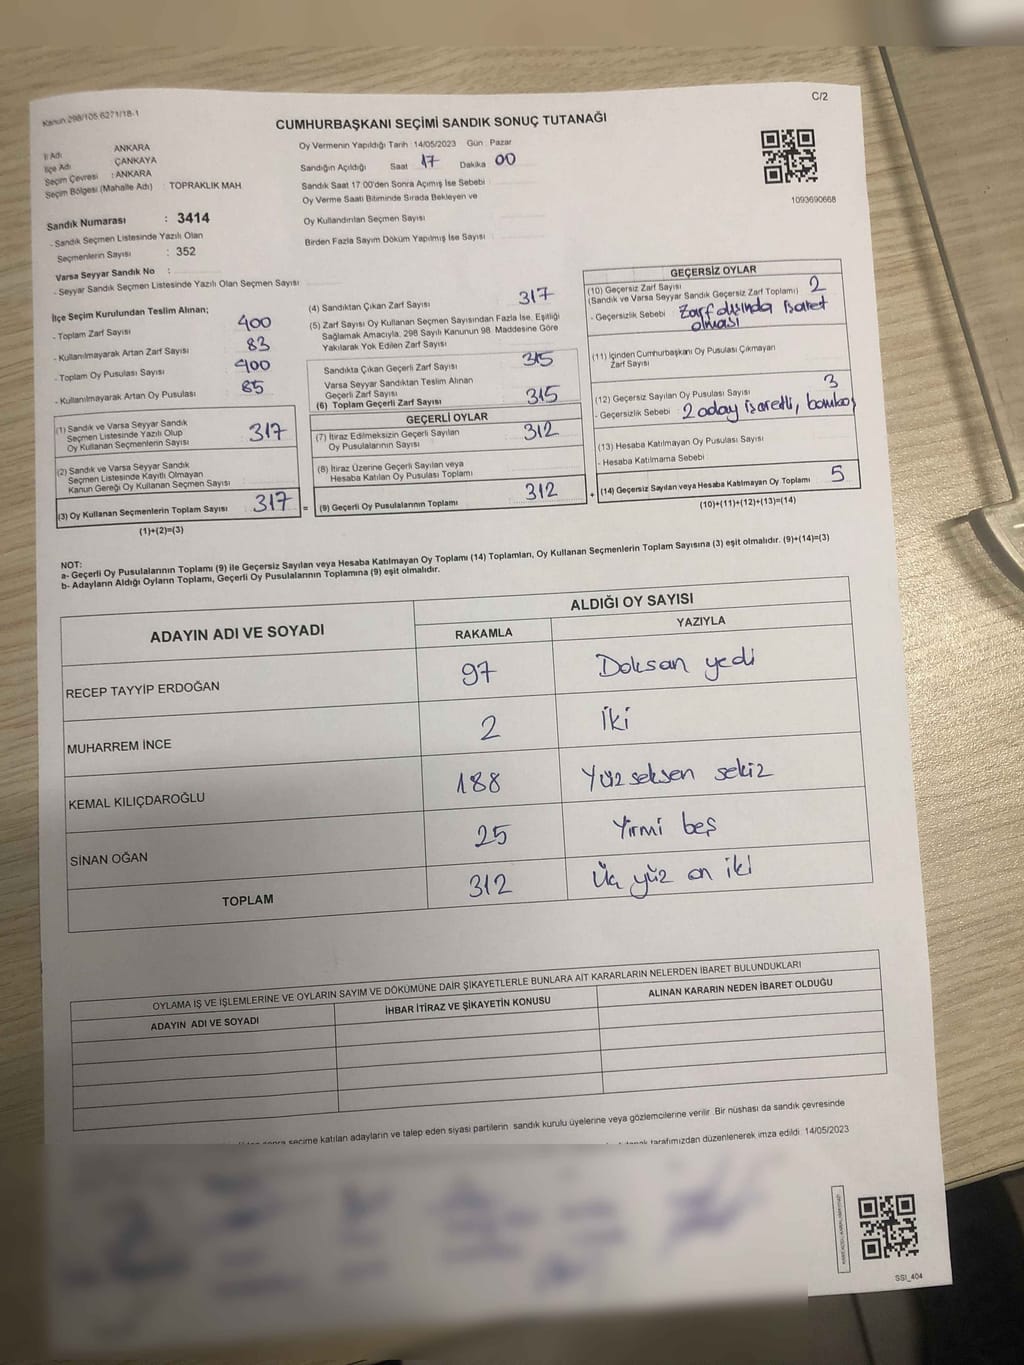 C/2
Kanun 298/105 6271/18-1
CUMHURBAŞKANI SEÇİMİ SANDIK SONUÇ TUTANAĞI
İl Adı ANKARA
İlçe Adı ÇANKAYA
Seçim Çevresi : ANKARA
Seçim Bölgesi (Mahalle Adı) : TOPRAKLIK MAH
Sandık Numarası : 3414
- Sandık Seçmen Listesinde Yazılı Olan
Seçmenlerin Sayısı : 352
Varsa Seyyar Sandık No :
- Seyyar Sandık Seçmen Listesinde Yazılı Olan Seçmen Sayısı
Oy Vermenin Yapıldığı Tarih 14/05/2023 Gün Pazar
Sandığın Açıldığı Saat 17 Dakika 00
Sandık Saat 17:00'den Sonra Açımış İse Sebebi
Oy Verme Saati Bitiminde Sırada Bekleyen ve
Oy Kullandırılan Seçmen Sayısı
Birden Fazla Sayım Döküm Yapılmış İse Sayısı
1093690668
İlçe Seçim Kurulundan Teslim Alınan;
- Toplam Zarf Sayısı 400
- Kullanılmayarak Artan Zarf Sayısı 83
- Toplam Oy Pusulası Sayısı 400
- Kullanılmayarak Artan Oy Pusulası 85
(1) Sandık ve Varsa Seyyar Sandık
Seçmen Listesinde Yazılı Olup
Oy Kullanan Seçmenlerin Sayısı 317
(2) Sandık ve Varsa Seyyar Sandık
Seçmen Listesinde Kayıtlı Olmayan
Kanun Gereği Oy Kullanan Seçmen Sayısı
(3) Oy Kullanan Seçmenlerin Toplam Sayısı 317 =
(1)+(2)=(3)
(4) Sandıktan Çıkan Zarf Sayısı 317
(5) Zarf Sayısı Oy Kullanan Seçmen Sayısından Fazla İse, Eşitliği
Sağlamak Amacıyla, 298 Sayılı Kanunun 98. Maddesine Göre
Yakılarak Yok Edilen Zarf Sayısı
Sandıkta Çıkan Geçerli Zarf Sayısı 315
Varsa Seyyar Sandıktan Teslim Alınan
Geçerli Zarf Sayısı
(6) Toplam Geçerli Zarf Sayısı 315
GEÇERLİ OYLAR
(7) İtiraz Edilmeksizin Geçerli Sayılan
Oy Pusulalarının Sayısı 312
(8) İtiraz Üzerine Geçerli Sayılan veya
Hesaba Katılan Oy Pusulası Toplamı
(9) Geçerli Oy Pusulalarının Toplamı 312 +
GEÇERSİZ OYLAR
(10) Geçersiz Zarf Sayısı
(Sandık ve Varsa Seyyar Sandık Geçersiz Zarf Toplamı) 2
- Geçersizlik Sebebi Zarf dışında işaret
olması
(11) İçinden Cumhurbaşkanı Oy Pusulası Çıkmayan
Zarf Sayısı
(12) Geçersiz Sayılan Oy Pusulası Sayısı 3
- Geçersizlik Sebebi 2 aday işaretli, bomboş
(13) Hesaba Katılmayan Oy Pusulası Sayısı
- Hesaba Katılmama Sebebi
(14) Geçersiz Sayılan veya Hesaba Katılmayan Oy Toplamı 5
(10)+(11)+(12)+(13)=(14)
NOT:
a- Geçerli Oy Pusulalarının Toplamı (9) ile Geçersiz Sayılan veya Hesaba Katılmayan Oy Toplamı (14) Toplamları, Oy Kullanan Seçmenlerin Toplam Sayısına (3) eşit olmalıdır. (9)+(14)=(3)
b- Adayların Aldığı Oyların Toplamı, Geçerli Oy Pusulalarının Toplamına (9) eşit olmalıdır.
ADAYIN ADI VE SOYADI ALDIĞI OY SAYISI
RAKAMLA YAZIYLA
RECEP TAYYİP ERDOĞAN 97 Doksan yedi
MUHARREM İNCE 2 İki
KEMAL KILIÇDAROĞLU 188 Yüz seksen sekiz
SİNAN OĞAN 25 Yirmi beş
TOPLAM 312 Üç yüz on iki
OYLAMA İŞ VE İŞLEMLERİNE VE OYLARIN SAYIM VE DÖKÜMÜNE DAİR ŞİKAYETLERLE BUNLARA AİT KARARLARIN NELERDEN İBARET BULUNDUKLARI
ADAYIN ADI VE SOYADI İHBAR İTİRAZ VE ŞİKAYETİN KONUSU ALINAN KARARIN NEDEN İBARET OLDUĞU
sonra seçime katılan adayların ve talep eden siyasi partilerin sandık kurulu üyelerine veya gözlemcilerine verilir. Bir nüshası da sandık çevresinde
tarafımızdan düzenlenerek imza edildi. 14/05/2023
SSI_404